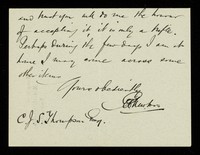 and trust you will do me the honour
of accepting it, it is only a trifle.
Perhaps during the few days I am at
home I may come across some
other items
Yours obediently
C. J. S. Thompson Esq.